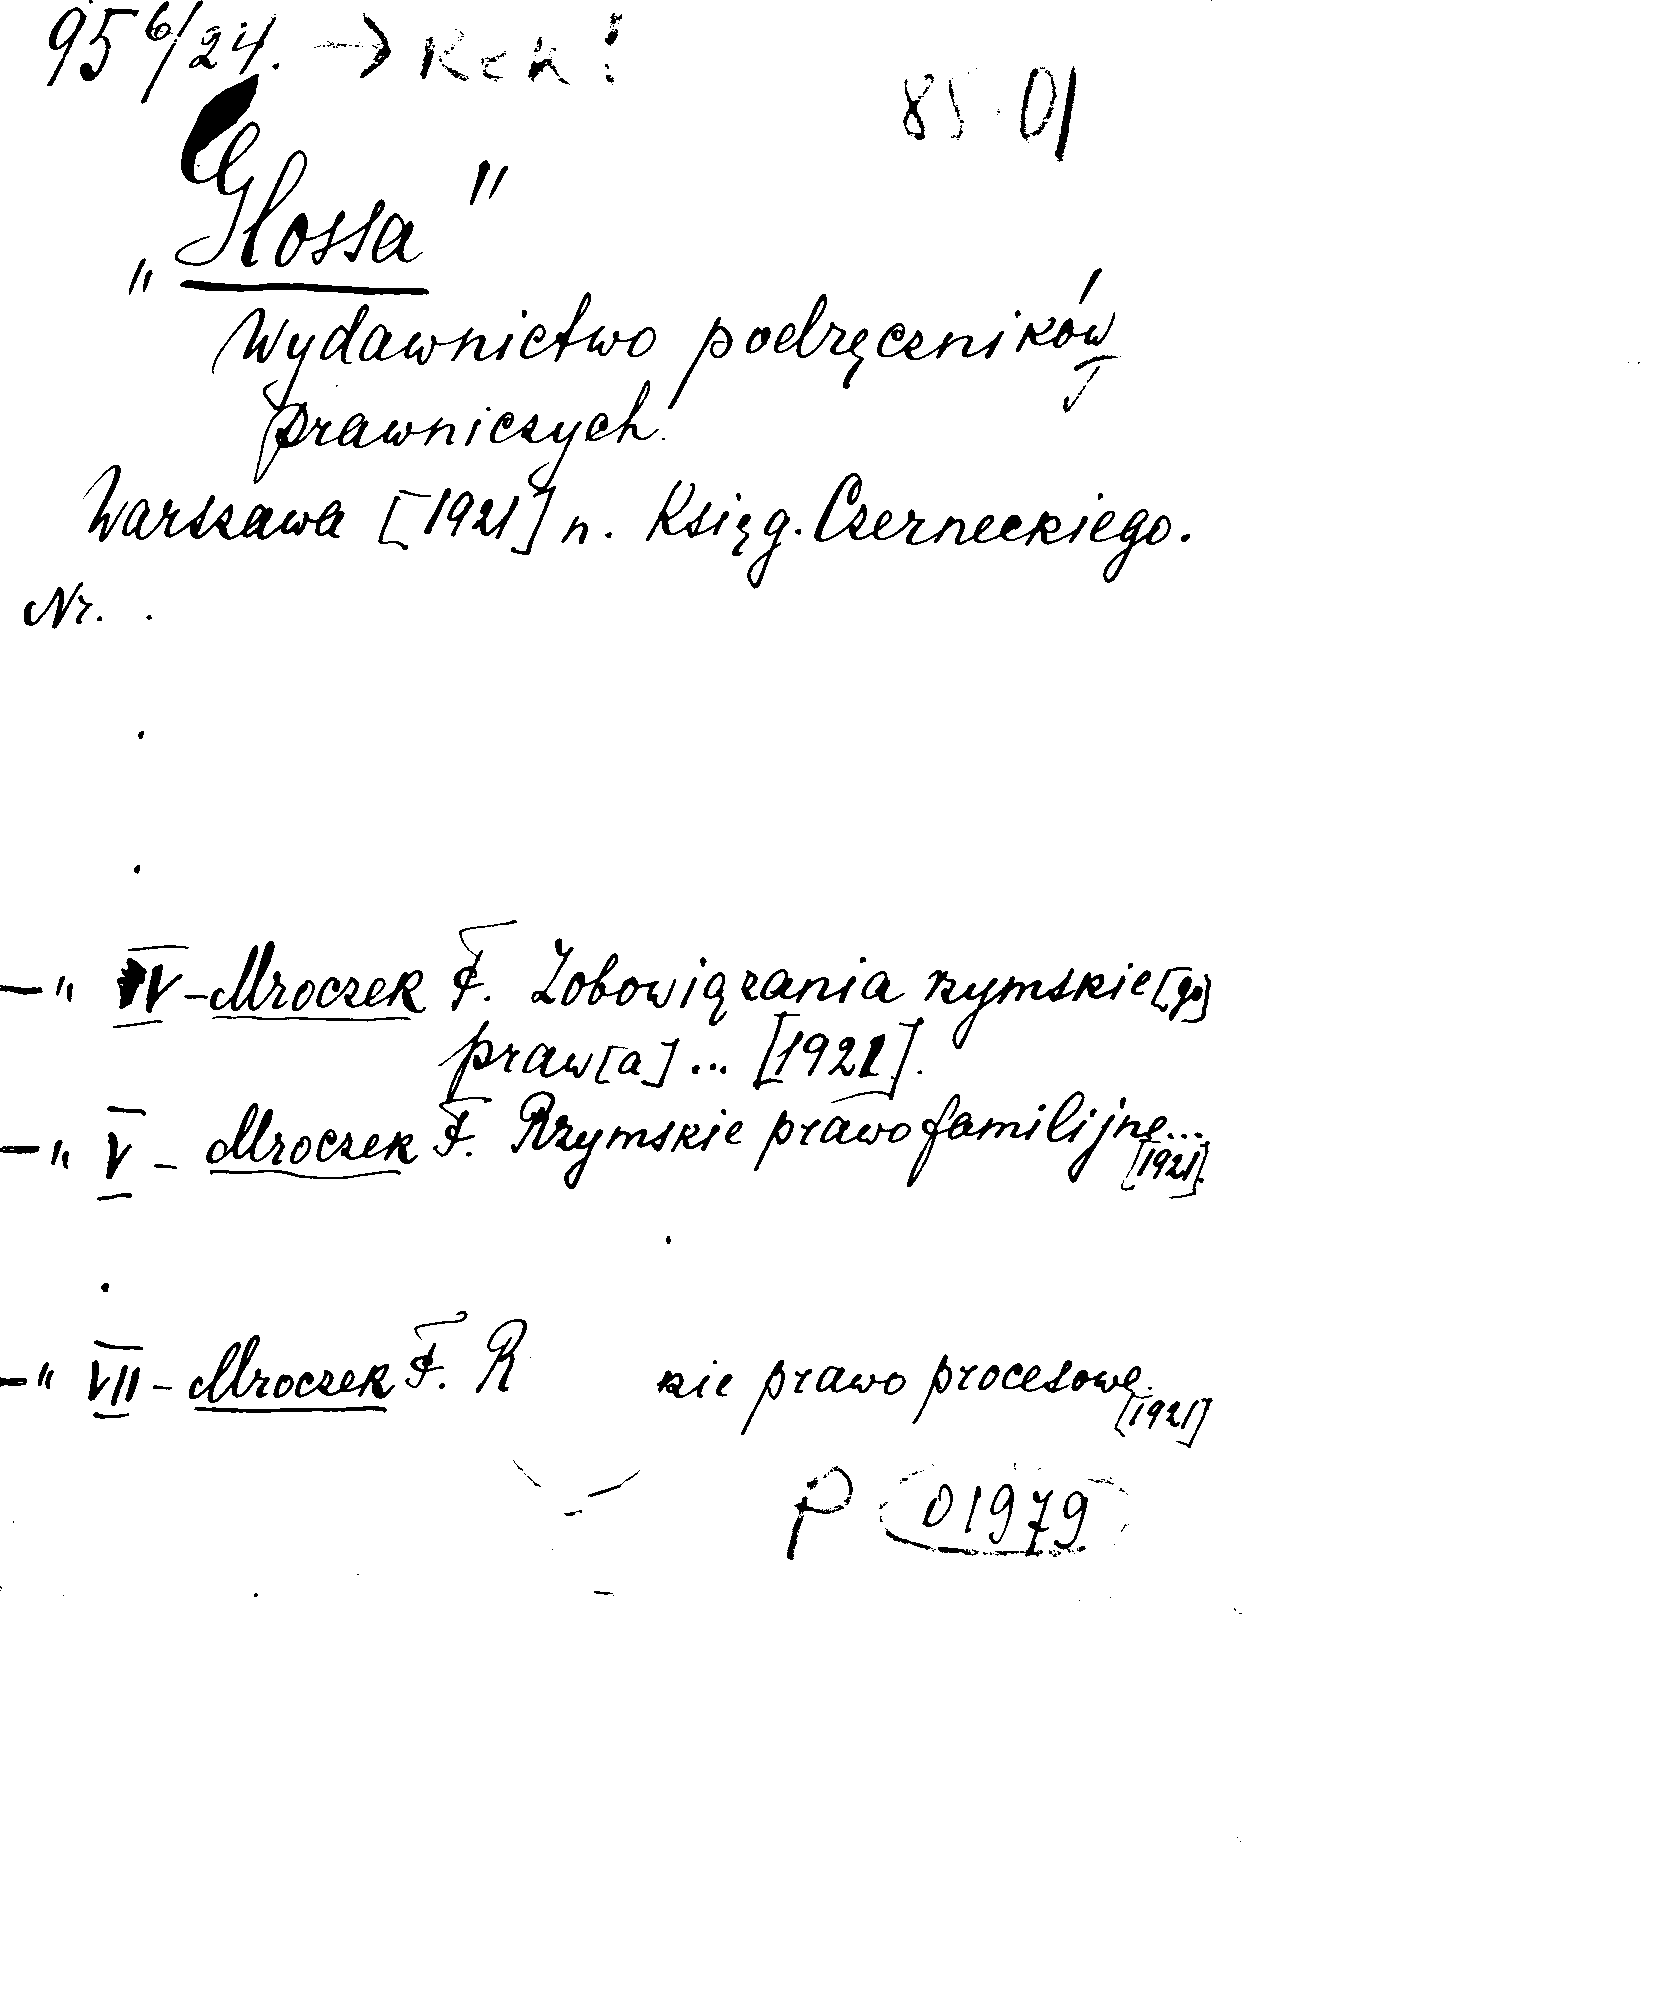 95 6/24. → Rek!
85.01
„Glossa"
Wydawnictwo podręczników
prawniczych.
Warszawa [1921] n. Księg. Czerneckiego.
Nr. .
— " IV - Mroczek F. Zobowiązania rzymskie[go]
praw[a] ... [1921].
— " V - Mroczek F. Rzymskie prawo familijne...
[1921].
— " VII - Mroczek F. R kie prawo procesowe.
[1921]
P 01979